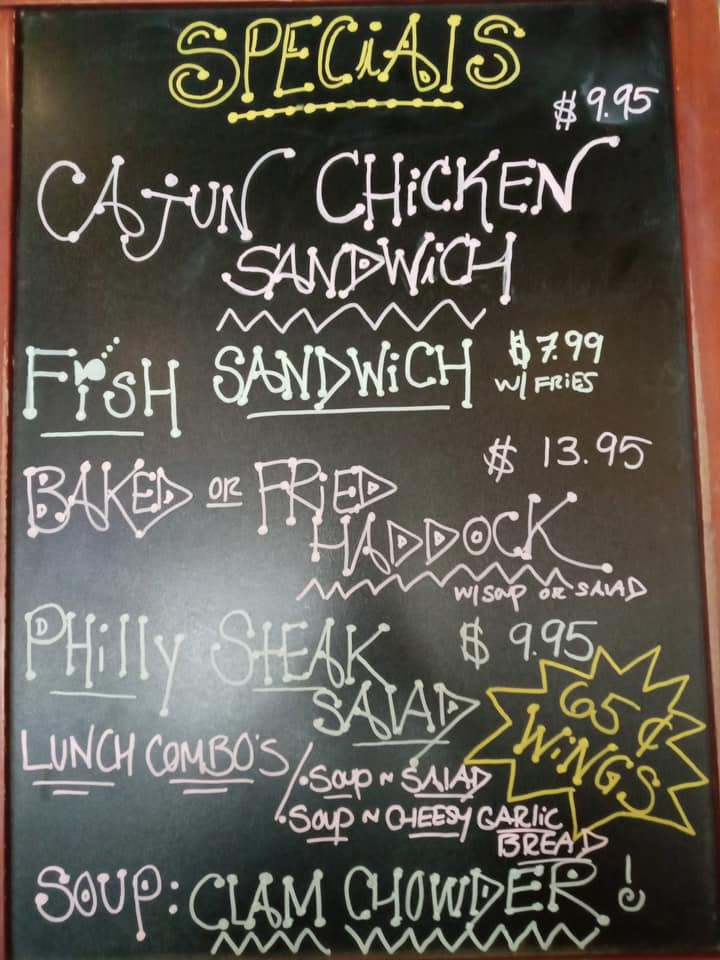 SPECiAlS
$ 9.95
CAJUN CHiCKEN
SANDWiCH
FiSH SANDWiCH $7.99
W/ FRiES
$ 13.95
BAKED OR FRiED
HADDOCK
W/ SOUP OR SALAD
PHilly STEAK $ 9.95
SALAD
65¢
WiNGS
LUNCH COMBO'S
• SOUP N SALAD
• SOUP N CHEESY GARLIC
BREAD
SOUP: CLAM CHOWDER!